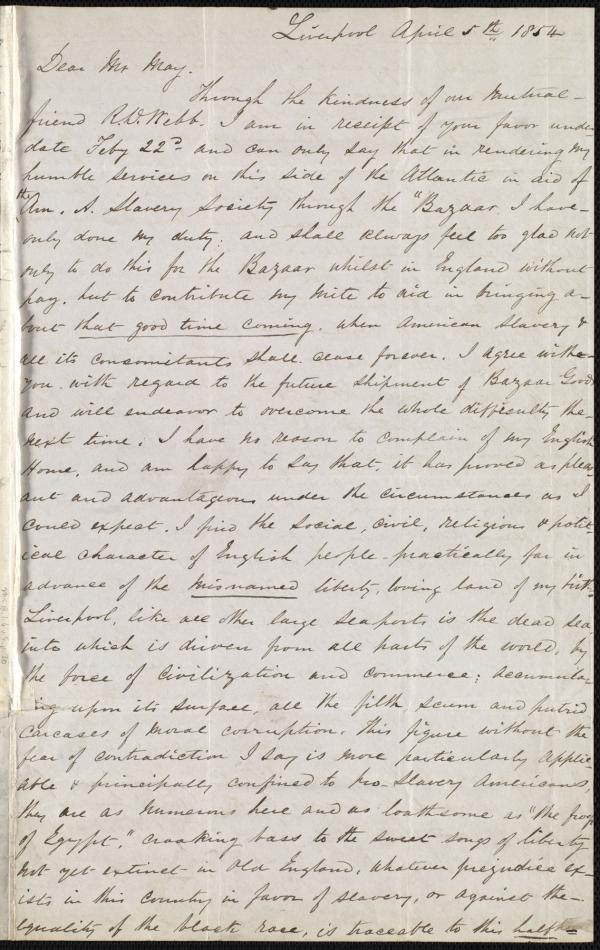 Liverpool April 5th 1854
Dear Mr May.
Through the kindness of our mutual-
friend R.D. Webb. I am in receipt of your favor under
date Feby 22d and can only say that in rendering my
humble services on this side of the Atlantic in aid of
the Am. A. Slavery Society through the "Bazaar I have-
only done my duty; and shall always feel too glad not
only to do this for the Bazaar whilst in England without
pay, but to contribute my mite to aid in bringing a-
bout that good time coming, when American Slavery &
all its concomitants shall cease forever. I agree with-
you with regard to the future shipment of Bazaar Goods
and will endeavor to overcome the whole difficulty the-
next time. I have no reason to complain of my English
Home, and am happy to say that, it has proved as pleas
ant and advantageous under the circumstances as I
could expect. I find the social, civil, religious & polit-
ical character of English people-practically far in
advance of the misnamed liberty, loving land of my birth
Liverpool, like all other large seaports is the dead sea,
into which is driven from all parts of the world, by
the force of civilization and commerce; accumula-
ing upon its surface, all the filth, scum and putrid
carcases of moral corruption. This figure without the
fear of contradiction I say is more particularly applic-
able & principally confined to Pro-Slavery Americans,
they are as numerous here and as loathsome as "the frogs
of Egypt," croaking bass to the sweet songs of liberty
not yet extinct in Old England, whatever prejudice ex-
ists in this country in favor of slavery, or against the-
equality of the black race, is traceable to this